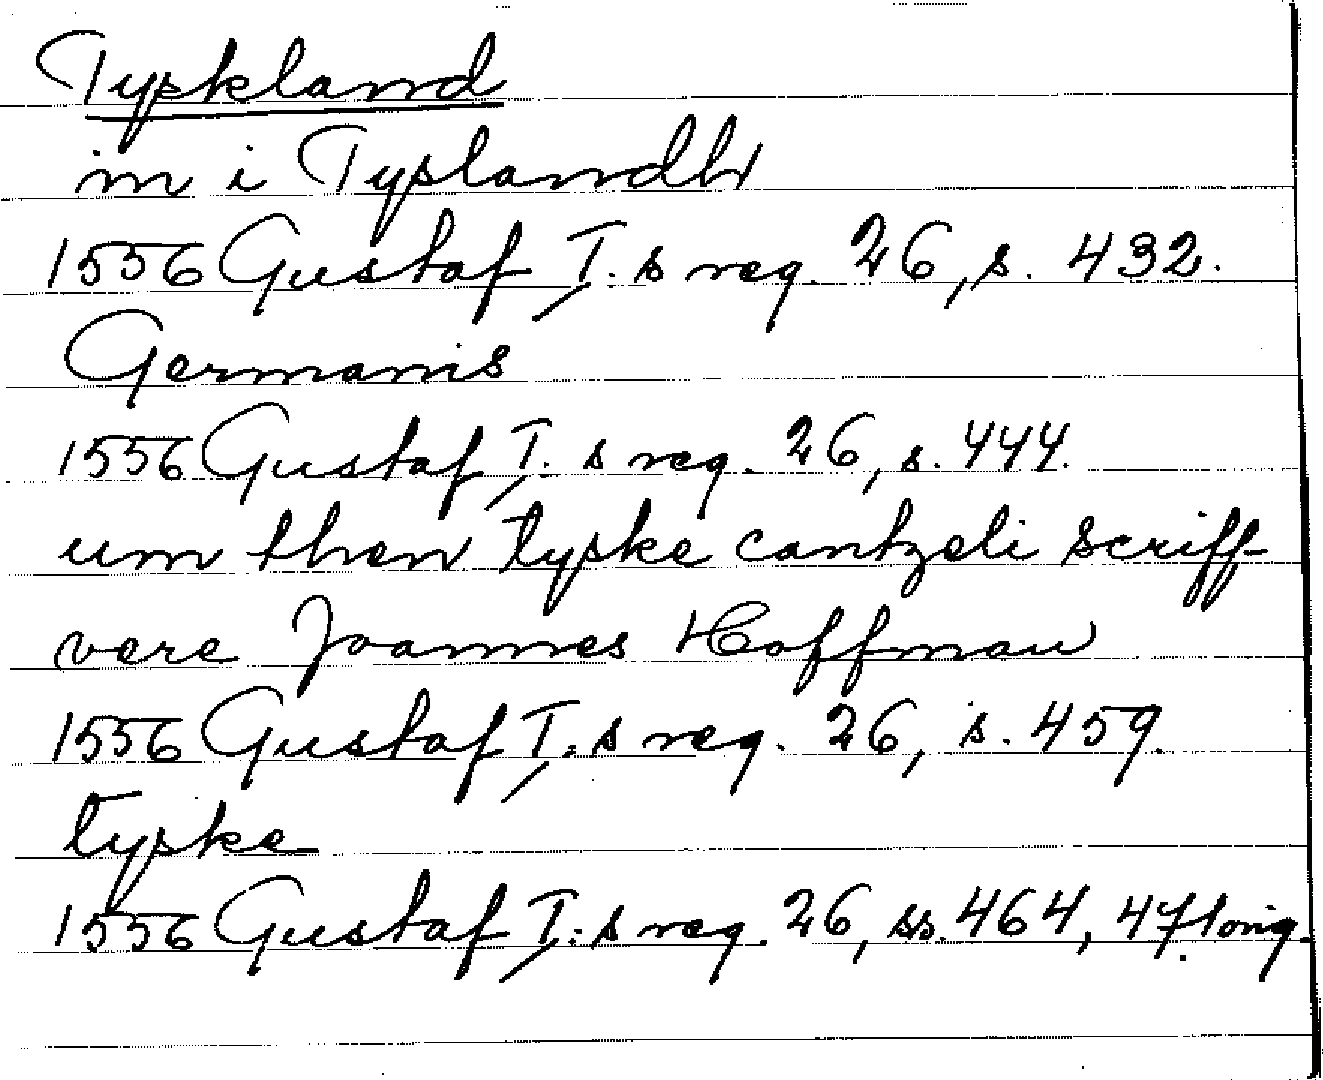 Tyskland
in i Tyslandh
1556 Gustaf I. s reg. 26, s. 432.
Germanis
1556 Gustaf I. s reg. 26, s. 444.
um then tyske cantzeli scriff-
vere Joannes Hoffman
1556 Gustaf I: s reg. 26, s. 459.
tyske
1556 Gustaf I: s reg. 26, ss. 464, 471